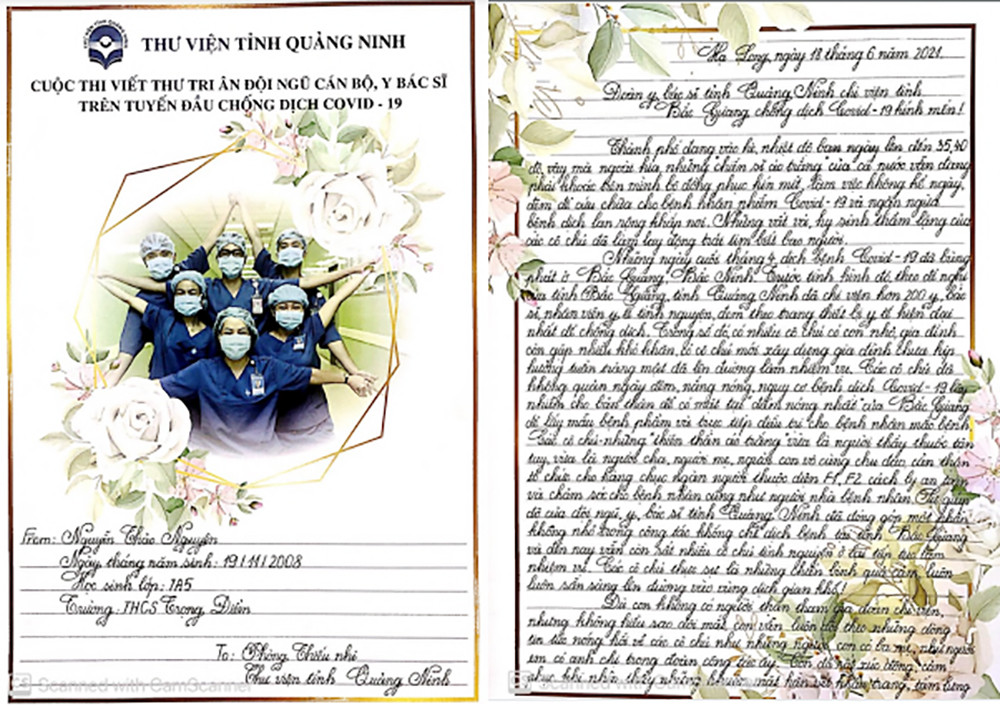 THƯ VIỆN TỈNH QUẢNG NINH
CUỘC THI VIẾT THƯ TRI ÂN ĐỘI NGŨ CÁN BỘ, Y BÁC SĨ
TRÊN TUYẾN ĐẦU CHỐNG DỊCH COVID - 19
From: Nguyễn Thảo Nguyên
Ngày tháng năm sinh: 19/11/2008
Học sinh lớp: 7A5
Trường: THCS Trọng Điểm
To: Phòng Thiếu nhi
Thư viện tỉnh Quảng Ninh
Scanned with CamScanner
Hạ Long, ngày 18 tháng 6 năm 2021.
Đoàn y, bác sĩ tỉnh Quảng Ninh chi viện tỉnh
Bắc Giang chống dịch Covid-19 kính mến!
Thành phố đang vào hè, nhiệt độ ban ngày lên đến 35,40
độ, vậy mà ngoài kia những "chiến sĩ áo trắng" của cả nước vẫn đang
phải khoác trên mình bộ đồng phục kín mít, làm việc không kể ngày,
đêm để cứu chữa cho bệnh nhân nhiễm Covid-19 và ngăn ngừa
bệnh dịch lan rộng khắp nơi. Những vất vả, hy sinh thầm lặng của
các cô chú đã làm lay động trái tim biết bao người.
Những ngày cuối tháng 4, dịch bệnh Covid-19 đã bùng
phát ở Bắc Giang, Bắc Ninh. Trước tình hình đó, theo đề nghị
của tỉnh Bắc Giang, tỉnh Quảng Ninh đã chi viện hơn 200 y, bác
sĩ, nhân viên y tế tình nguyện, đem theo trang thiết bị y tế hiện đại
nhất để chống dịch. Trong số đó, có nhiều cô chú có con nhỏ, gia đình
còn gặp nhiều khó khăn, có cô chú mới xây dựng gia đình chưa kịp
hưởng tuần trăng mật đã lên đường làm nhiệm vụ. Các cô chú đã
không quản ngày đêm, nắng nóng, nguy cơ bệnh dịch Covid-19 lây
nhiễm cho bản thân để có mặt tại "điểm nóng nhất" của Bắc Giang
để lấy mẫu bệnh phẩm và trực tiếp điều trị cho bệnh nhân mắc bệnh.
Các cô chú-những "thiên thần áo trắng" vừa là người thầy thuốc tận
tụy, vừa là người cha, người mẹ, người con vô cùng chu đáo, cẩn thận
tổ chức cho hàng chục ngàn người thuộc diện F1, F2 cách ly an toàn
và chăm sóc cho bệnh nhân cũng như người nhà bệnh nhân. Sự giúp
đỡ của đội ngũ y, bác sĩ tỉnh Quảng Ninh đã đóng góp một phần
không nhỏ trong công tác khống chế dịch bệnh tại tỉnh Bắc Giang
và đến nay vẫn còn rất nhiều cô chú tình nguyện ở lại tiếp tục làm
nhiệm vụ. Các cô chú thực sự là những chiến binh quả cảm, luôn
luôn sẵn sàng lên đường vào vùng dịch gian khó!
Dù con không có người thân tham gia đoàn chi viện,
nhưng không hiểu sao đôi mắt con vẫn luôn dõi theo những dòng
tin tức nóng hổi về các cô chú như những người con có ba mẹ, như người
em có anh chị trong đoàn công tác ấy. Con đã rất xúc động, cảm
phục khi nhìn thấy những khuôn mặt hằn vết khẩu trang, tấm lưng